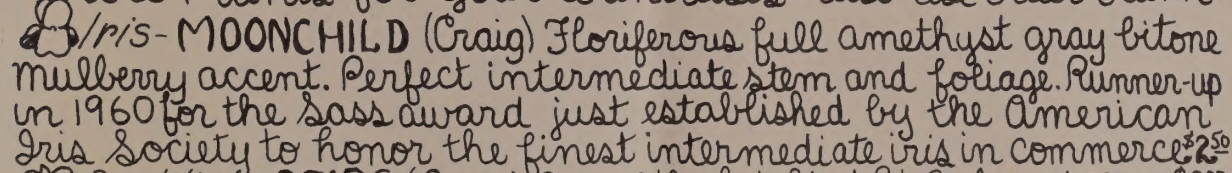 Iris - MOONCHILD (Craig) Floriferous full amethyst gray bitone
mulberry accent. Perfect intermediate stem and foliage. Runner-up
in 1960 for the Sass award just established by the American
Iris Society to honor the finest intermediate iris in commerce. $2.50